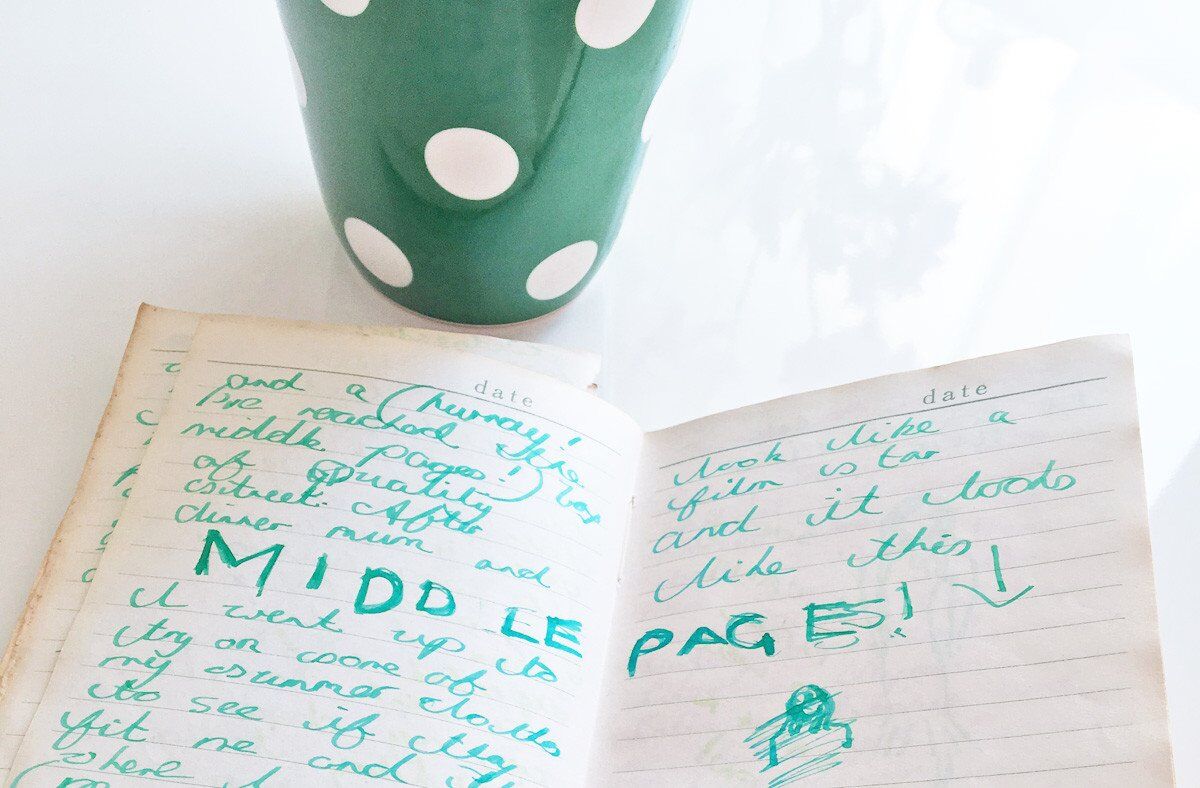 date
and a (hurray!
I've reached the
middle pages!) box
of Quality
street. After
dinner mum and
MIDDLE
I went up to
try on some of
my summer clothes
to see if they
fit me and
where I
date
look like a
film star
and it looks
like this
PAGES!